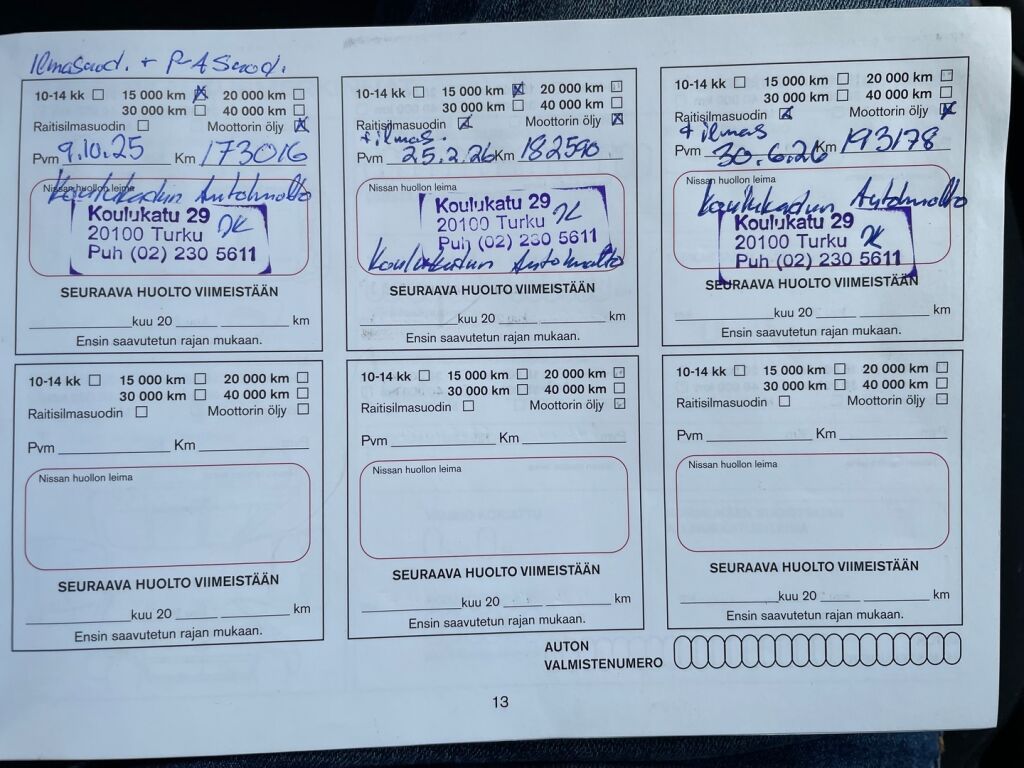 Ilmasuod. + RASuod.
10-14 kk 15 000 km 20 000 km
30 000 km 40 000 km
Raitisilmasuodin Moottorin öljy
Pvm 9.10.25 Km 173016
Nissan huollon leima
Koulukadun Autohuolto
Koulukatu 29
20100 Turku
Puh (02) 230 5611
SEURAAVA HUOLTO VIIMEISTÄÄN
kuu 20 km
Ensin saavutetun rajan mukaan.
10-14 kk 15 000 km 20 000 km
30 000 km 40 000 km
Raitisilmasuodin Moottorin öljy
+ ilmas.
Pvm 25.2.26 Km 182590
Nissan huollon leima
Koulukatu 29
20100 Turku
Puh (02) 230 5611
Koulukadun Autohuolto
SEURAAVA HUOLTO VIIMEISTÄÄN
kuu 20 km
Ensin saavutetun rajan mukaan.
10-14 kk 15 000 km 20 000 km
30 000 km 40 000 km
Raitisilmasuodin Moottorin öljy
+ ilmas
Pvm 30.6.26 Km 193178
Nissan huollon leima
Koulukadun Autohuolto
Koulukatu 29
20100 Turku
Puh (02) 230 5611
SEURAAVA HUOLTO VIIMEISTÄÄN
kuu 20 km
Ensin saavutetun rajan mukaan.
10-14 kk 15 000 km 20 000 km
30 000 km 40 000 km
Raitisilmasuodin Moottorin öljy
Pvm Km
Nissan huollon leima
SEURAAVA HUOLTO VIIMEISTÄÄN
kuu 20 km
Ensin saavutetun rajan mukaan.
10-14 kk 15 000 km 20 000 km
30 000 km 40 000 km
Raitisilmasuodin Moottorin öljy
Pvm Km
Nissan huollon leima
SEURAAVA HUOLTO VIIMEISTÄÄN
kuu 20 km
Ensin saavutetun rajan mukaan.
10-14 kk 15 000 km 20 000 km
30 000 km 40 000 km
Raitisilmasuodin Moottorin öljy
Pvm Km
Nissan huollon leima
SEURAAVA HUOLTO VIIMEISTÄÄN
kuu 20 km
Ensin saavutetun rajan mukaan.
AUTON
VALMISTENUMERO
13